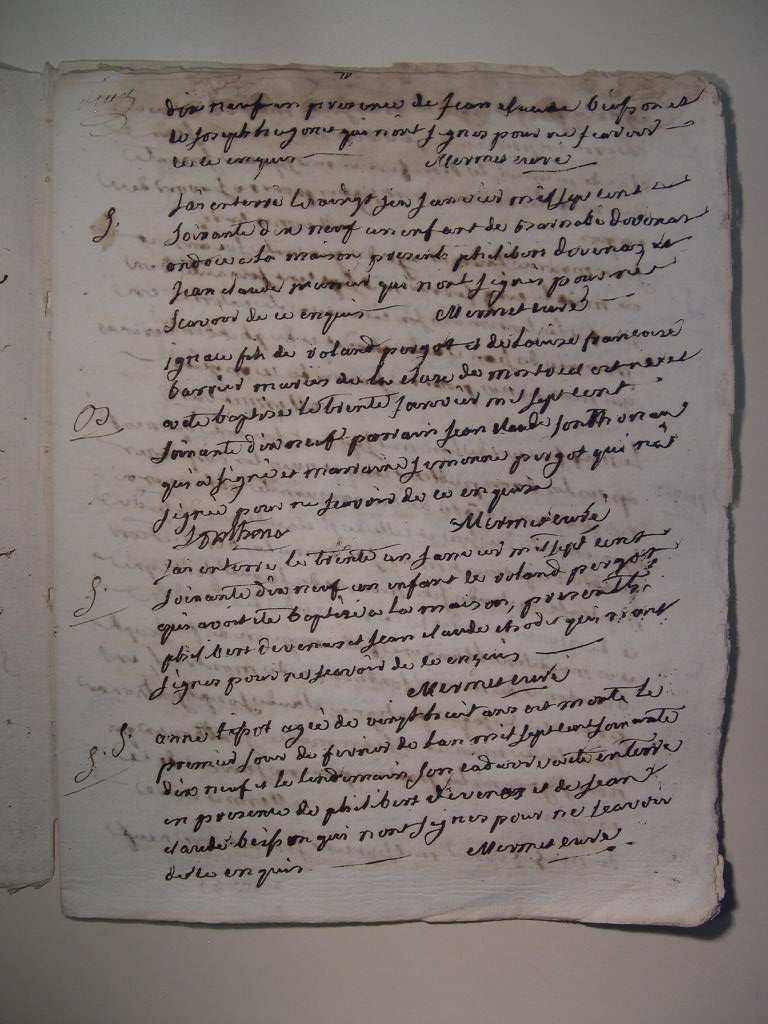 dix neuf en presence de Jean claude beisson et
de Joseph hugonet qui n'ont signés pour ne scavoir
de ce enquis Mermet curé
S. J'ai enterré le vingt six Janvier mil sept cent
soixante dix neuf un enfant de Barnabé dovenas
ondoié a la maison presents philibert dovenaz et
Jean claude qui n'ont signés pour ne
scavoir de ce enquis Mermet curé
ignace fils de roland pergot et de Louise francoise
barrier mariés de la cluse de montreal est né et
B a eté baptisé le trente Janvier mil sept cent
soixante dix neuf parrain Jean claude Jonthonas
qui a signé et marraine simonne pergot qui n'a
signée pour ne scavoir de ce enquise
Mermet curé
J'ai enterré le trente un Janvier mil sept cent
S. soixante dix neuf un enfant de roland pergot
qui avoit eté baptisé a la maison, presents
philibert devenas et Jean claude qui n'ont
signés pour ne scavoir de ce enquis
Mermet curé
S. anne tipot agée de vingt huit ans est morte le
S. premier jour de fevrier de l'an mil sept cent soixante
dix neuf et le lendemain son cadavre a eté enterré
en presence de philibert devenas et de Jean
claude beisson qui n'ont signés pour ne scavoir
de ce enquis Mermet curé